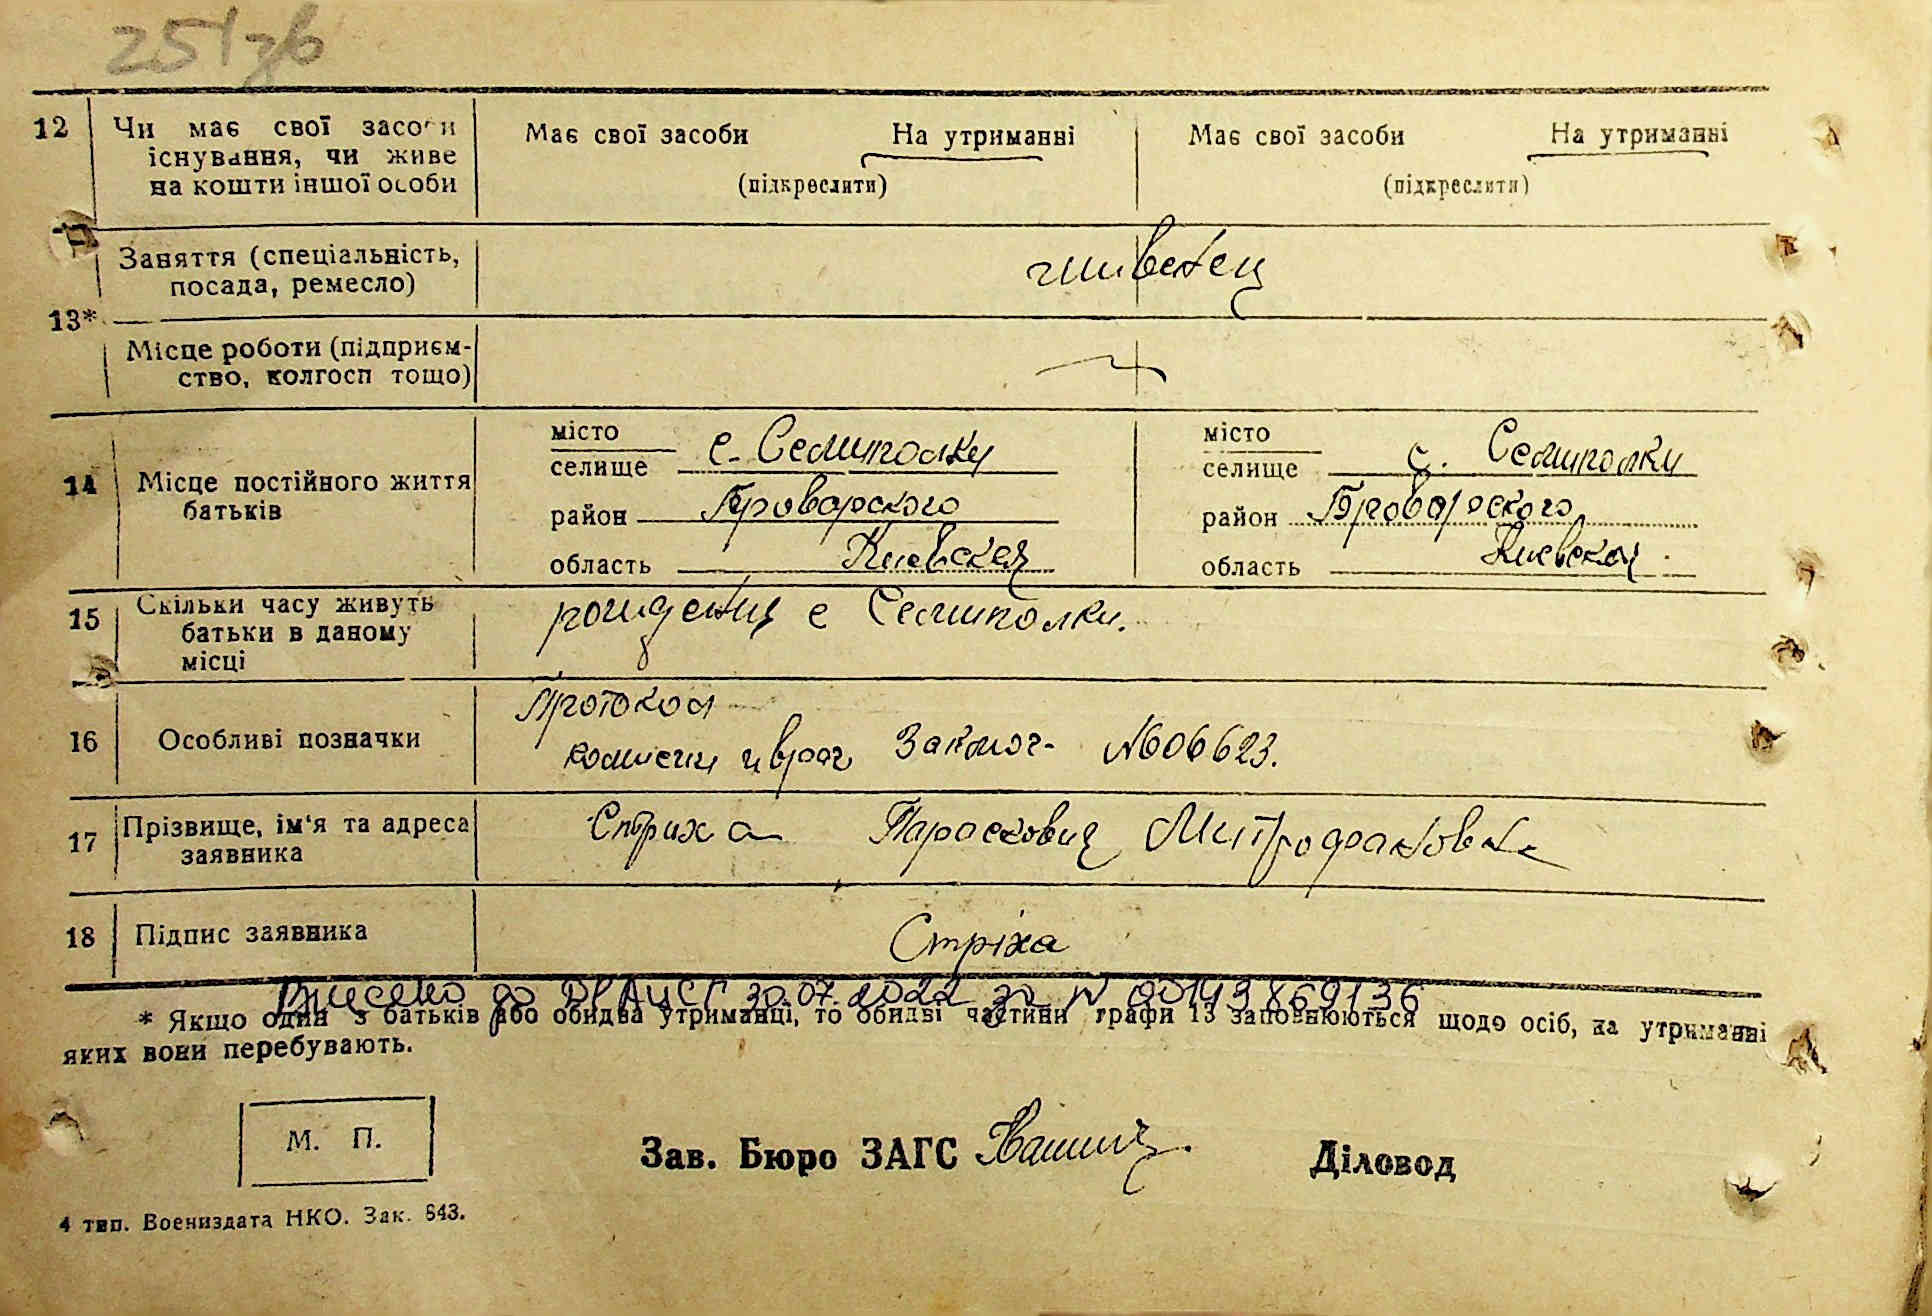 251зв
12 Чи має свої засоби Має свої засоби На утриманні Має свої засоби На утриманні
існування, чи живе
на кошти іншої особи (підкреслити) (підкреслити)
Заняття (спеціальність,
посада, ремесло)
13*
Місце роботи (підприєм-
ство, колгосп тощо)
місто с. Семиполки місто с. Семиполки
селище селище
14 Місце постійного життя
батьків район Броварского район Броварского
область Киевская область Киевская
15 Скільки часу живуть рождения с Семиполки.
батьки в даному
місці
Протокол
16 Особливі позначки комиссии и врач Заключ- №06623.
17 Прізвище, ім'я та адреса Стриха Парасковия Митрофановна
заявника
18 Підпис заявника Стріха
Внесено до ДРАЦСГ 30.07.2022 за № 00143869136
* Якщо один з батьків або обидва утриманці, то обидві частини графи 13 заповнюються щодо осіб, на утриманні
яких вони перебувають.
М. П.
Зав. Бюро ЗАГС Діловод
4 тип. Воениздата НКО. Зак. 643.